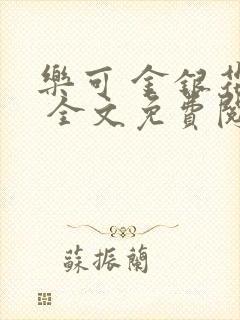 樂可 金銀花
全文免費閱
蘇振蘭